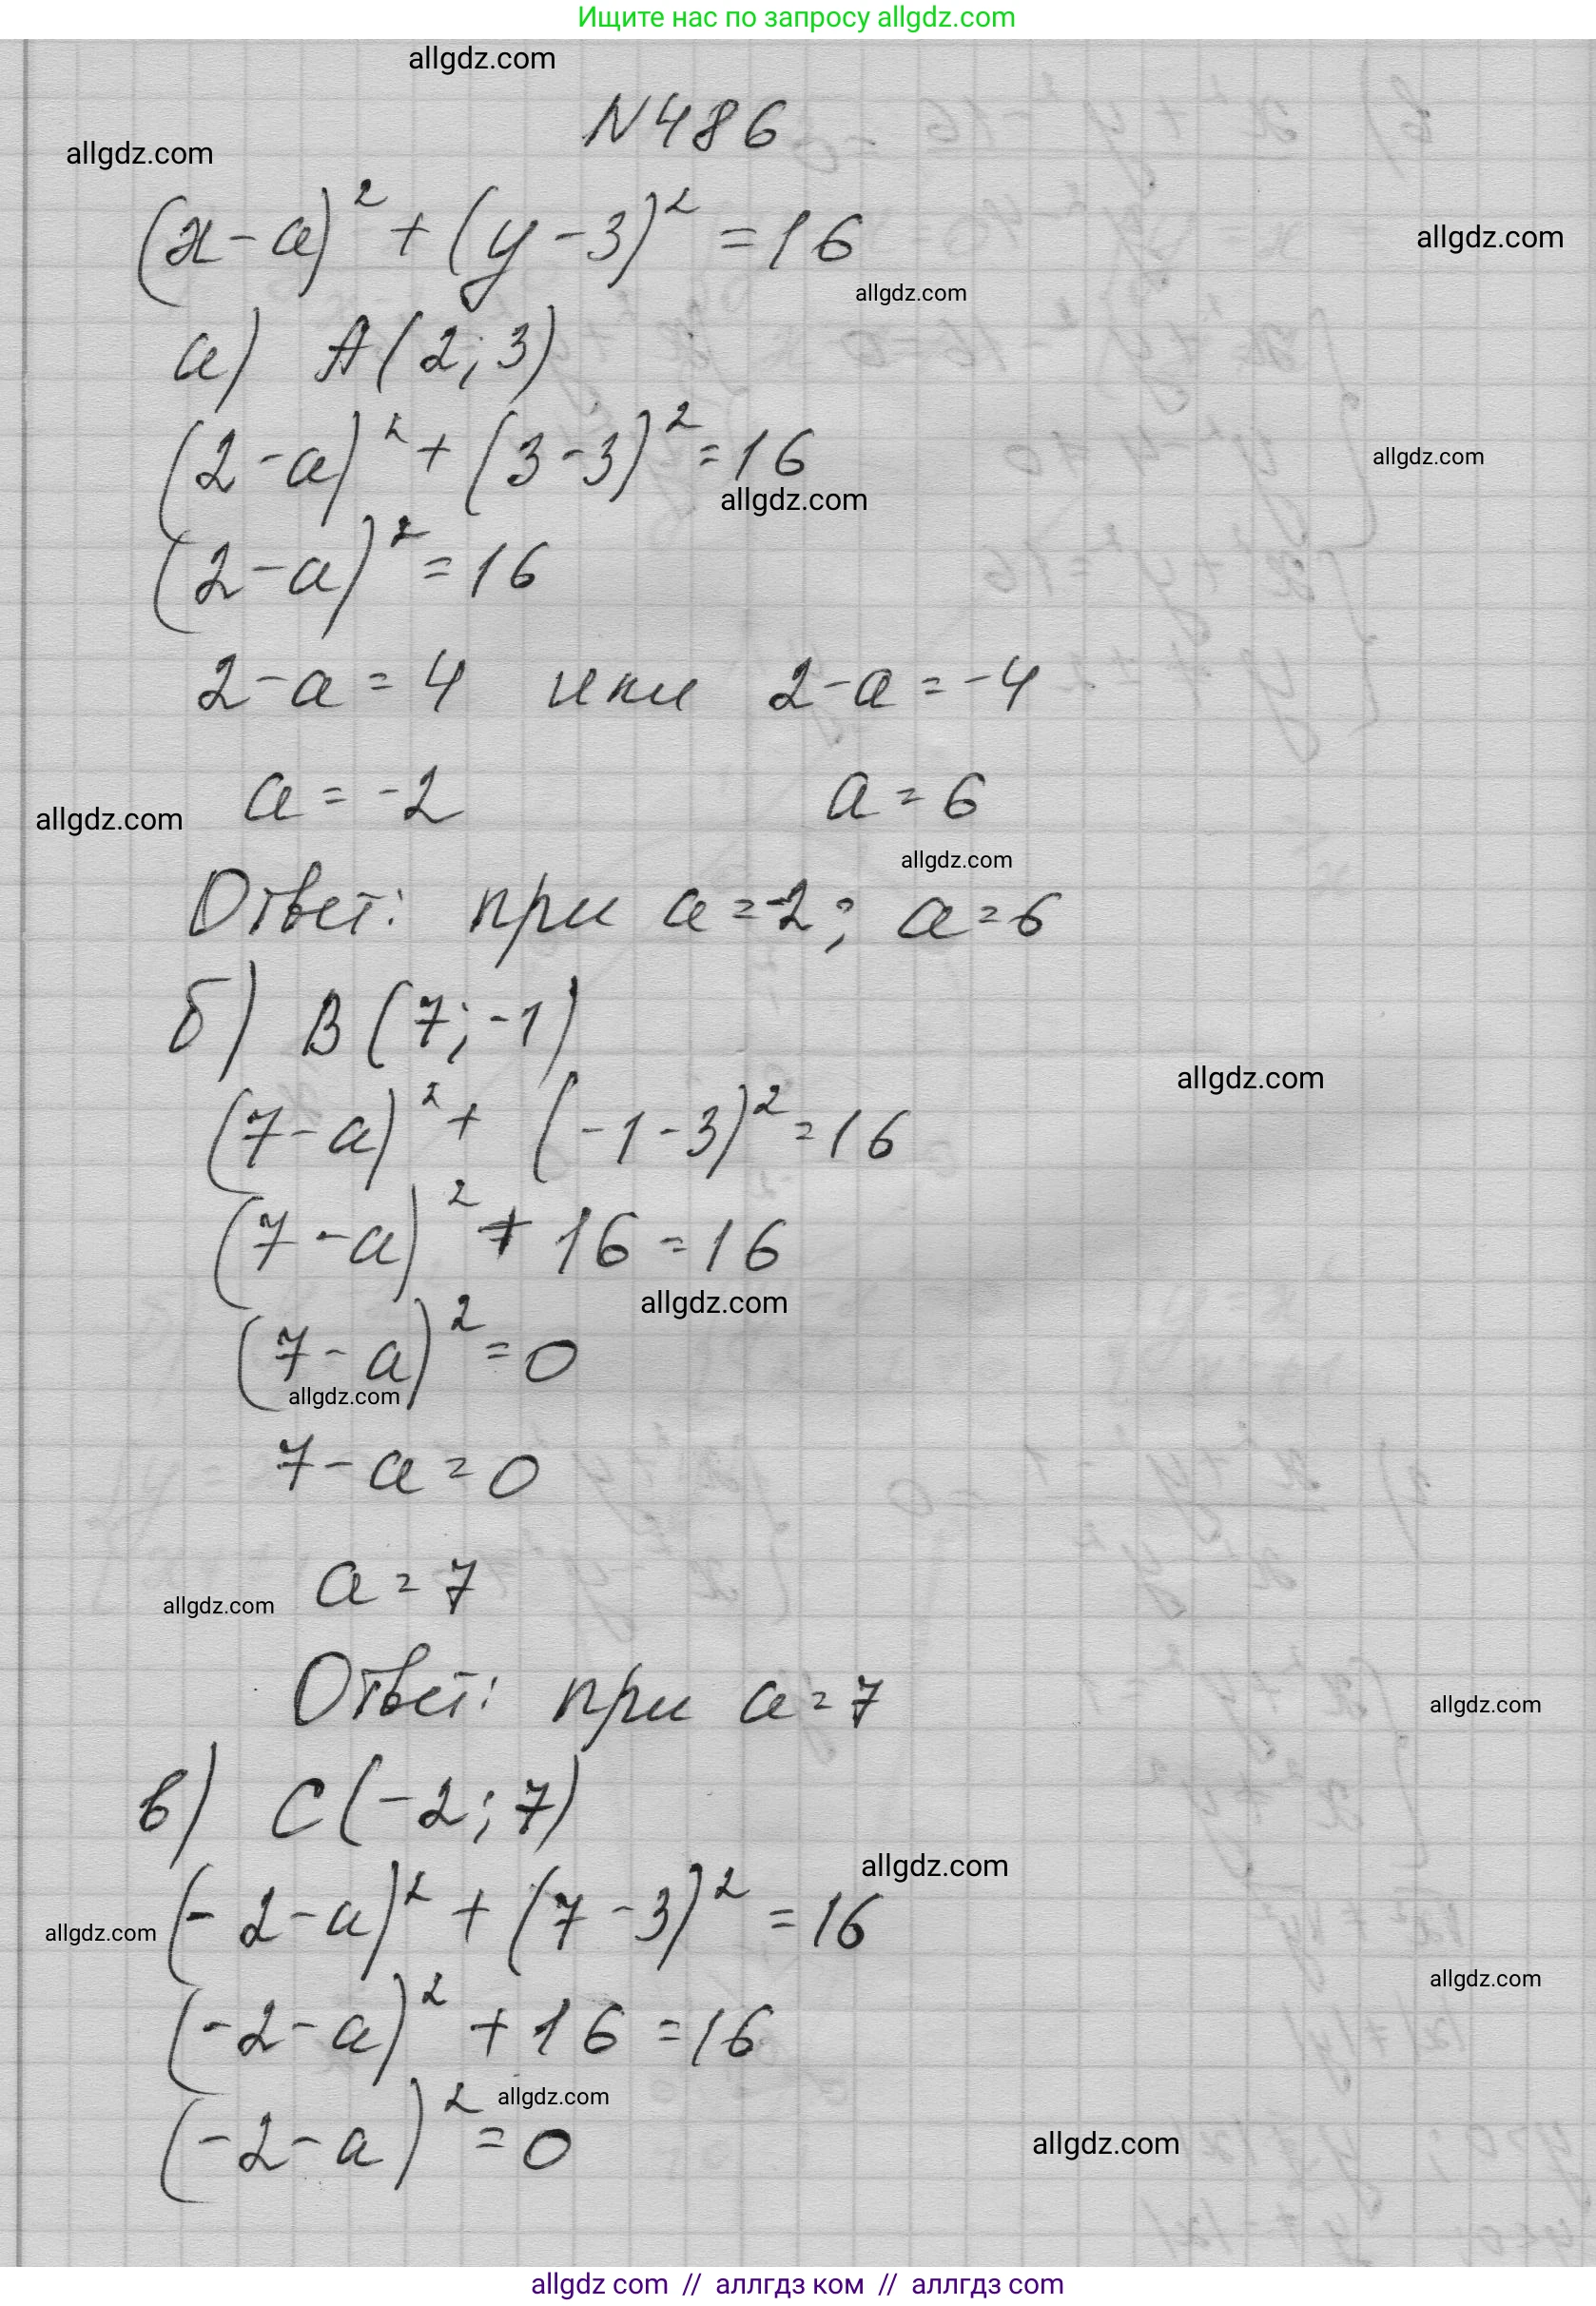 Ищите нас по запросу allgdz.com
allgdz.com
N486
allgdz.com
(x-a)² + (y-3)² = 16
allgdz.com
allgdz.com
а) A(2; 3)
(2-a)² + (3-3)² = 16
allgdz.com
allgdz.com
(2-a)² = 16
2-a = 4 или 2-a = -4
a = -2 a = 6
allgdz.com
allgdz.com
Ответ: при a = -2; a = 6
б) B(7; -1)
allgdz.com
(7-a)² + (-1-3)² = 16
(7-a)² + 16 = 16
allgdz.com
(7-a)² = 0
allgdz.com
7-a = 0
a = 7
allgdz.com
Ответ: при a = 7
allgdz.com
в) C(-2; 7)
allgdz.com
(-2-a)² + (7-3)² = 16
allgdz.com
allgdz.com
(-2-a)² + 16 = 16
allgdz.com
(-2-a)² = 0
allgdz.com
allgdz com // аллгдз ком // аллгдз com